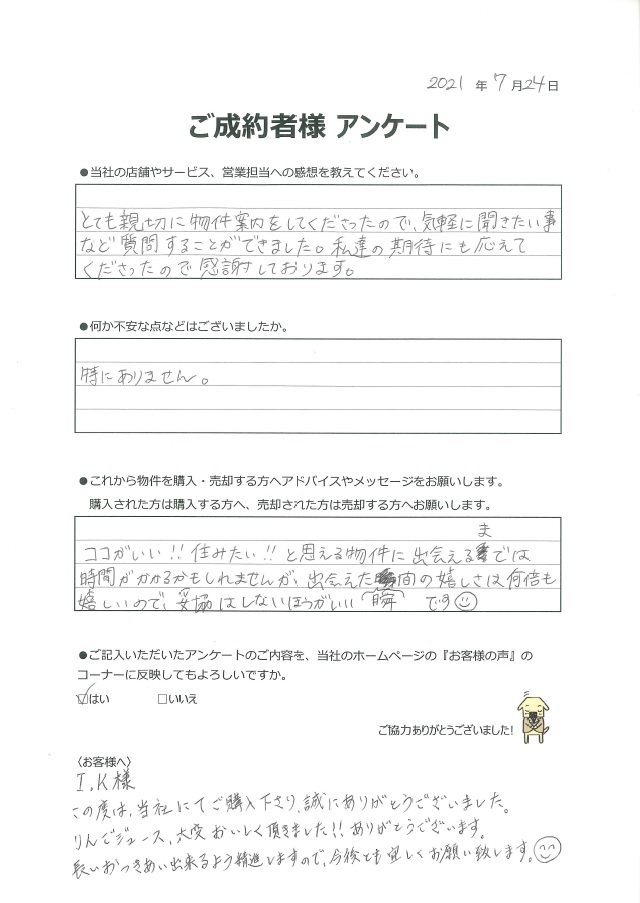 2021 年 7 月 24 日
ご成約者様 アンケート
●当社の店舗やサービス、営業担当への感想を教えてください。
とても親切に物件案内をしてくださったので、気軽に聞きたい事
など質問することができました。私達の期待にも応えて
くださったので感謝しております。
●何か不安な点などはございましたか。
特にありません。
●これから物件を購入・売却する方へアドバイスやメッセージをお願いします。
購入された方は購入する方へ、売却された方は売却する方へお願いします。
ま
ココがいい!! 住みたい!! と思える物件に出会えるでは
時間がかかるかもしれませんが、出会えた間の嬉しさは何倍も
嬉しいので、妥協はしないほうがいい 瞬 です
●ご記入いただいたアンケートのご内容を、当社のホームページの『お客様の声』の
コーナーに反映してもよろしいですか。
☑はい □いいえ
ご協力ありがとうございました!
〈お客様へ〉
I.K様
この度は、当社にてご購入下さり、誠にありがとうございました。
りんごジュース、大変おいしく頂きました!! ありがとうございます。
長いおつきあい出来るよう精進しますので、今後とも宜しくお願い致します。